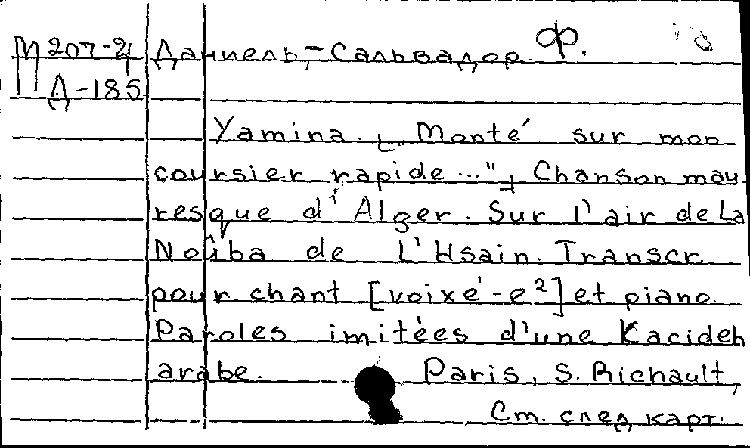 М 207-21 Даниель-Сальвадор Ф.
Д-185
Yamina. "Monté sur mon
coursier rapide...", Chanson mau-
resque d'Alger. Sur l'air de La
Noûba de L'Hsain. Transcr.
pour chant [voix é-e²] et piano.
Paroles imitées d'une Kacideh
arabe. Paris, S. Richault,
См. след. карт.